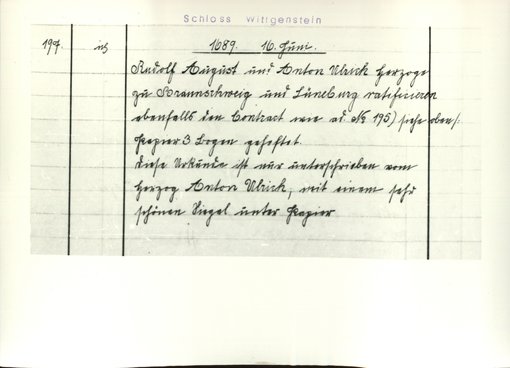 Schloss Wittgenstein
197. 1689. 16. Juni.
Rudolf August und Anton Ulrich Herzoge
zu Braunschweig und Lüneburg ratificieren
ebenfalls den Contract wie ad No 195) siehe oben/:
Papier 3 Bogen geheftet.
Diese Urkunde ist nur unterschrieben vom
Herzog Anton Ulrich, mit einem sehr
schönen Siegel unter Papier